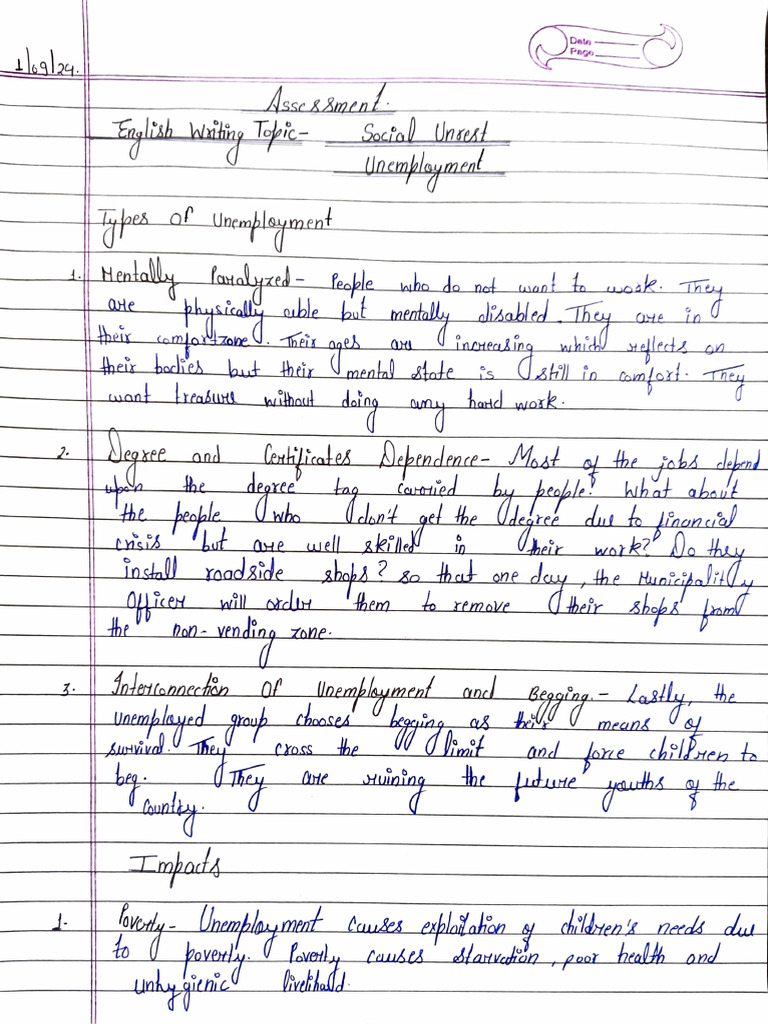 Date
Page
1/09/24.
Assessment.
English Writing Topic- Social Unrest
Unemployment
Types Of Unemployment
1. Mentally Paralyzed - People who do not want to work. They
are physically able but mentally disabled. They are in
their comfortzone. Their ages are increasing which reflects on
their bodies but their mental state is still in comfort. They
want treasure without doing any hard work.
2. Degree and Certificates Dependence - Most of the jobs depend
upon the degree tag carried by people. What about
the people who don't get the degree due to financial
crisis but are well skilled in their work? Do they
install roadside shops? so that one day, the Municipality
Officer will order them to remove their shops from
the non-vending zone.
3. Interconnection Of Unemployment and Begging. - Lastly, the
unemployed group chooses begging as their means of
survival. They cross the limit and force children to
beg. They are ruining the future youths of the
Country.
Impacts
1. Poverty - Unemployment causes exploitation of children's needs due
to poverty. Poverty causes starvation, poor health and
unhygienic livelihood.